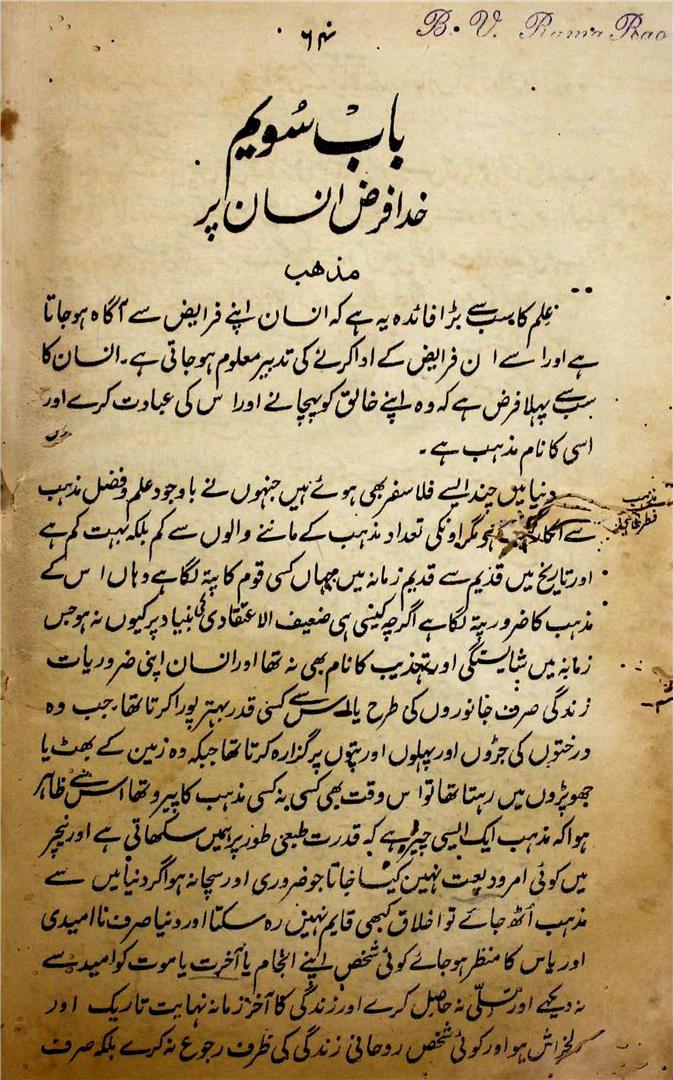 ۶۴
B. V. Rama Rao
باب سُویم
خدا فرض انسان پر
مذهب
عِلم کا سب سے بڑا فائدہ یہ ہے کہ انسان اپنے فرایض سے آگاہ ہوجاتا
ہے اور اسے ان فرایض کے ادا کرنے کی تدبیر معلوم ہوجاتی ہے۔ انسان کا
سب سے پہلا فرض ہے کہ وہ اپنے خالق کو پہچانے اور اس کی عبادت کرے اور
اسی کا نام مذہب ہے۔
دنیا میں چند ایسے فلاسفر بھی ہوئے ہیں جنہوں نے باوجود علم و فضل مذہب
سے انکار مگر اونکی تعداد مذہب کے ماننے والوں سے کم بلکہ بہت کم ہے
مذہب
اور تاریخ میں قدیم سے قدیم زمانہ میں جہاں کسی قوم کا پتہ لگا ہے وہاں اس کے
مذہب کا ضرور پتہ لگا ہے اگرچہ کیسی ہی ضعیف الاعتقادی کی بنیاد پر کیوں نہ ہو جس
زمانہ میں شایستگی اور تہذیب کا نام بھی نہ تھا اور انسان اپنی ضروریات
زندگی صرف جانوروں کی طرح یا اس سے کسی قدر بہتر پورا کرتا تھا۔ جب وہ
درختوں کی جڑوں اور پہلوں اور پتوں پر گزارہ کرتا تھا جبکہ وہ زمین کے بھٹ یا
جھوپڑوں میں رہتا تھا تو اس وقت بھی کسی نہ کسی مذہب کا پیرو تھا اس سے ظاہر
ہوا کہ مذہب ایک ایسی چیز ہے کہ قدرت طبعی طور پر ہمیں سکھاتی ہے اور نیچر
میں کوئی امر ودیعت نہیں کیا جاتا جو ضروری اور سچا نہ ہو اگر دنیا میں سے
مذہب اُٹھ جائے تو اخلاق کبھی قایم نہیں رہ سکتا اور دنیا صرف ناامیدی
اور یاس کا منظر ہوجائے کوئی شخص اپنے انجام یا آخرت یا موت کو امید سے
نہ دیکھے اور تسلّی نہ حاصل کرے اور زندگی کا آخر زمانہ نہایت تاریک اور
دلخراش ہو اور کوئی شخص روحانی زندگی کی طرف رجوع نہ کرے بلکہ صرف